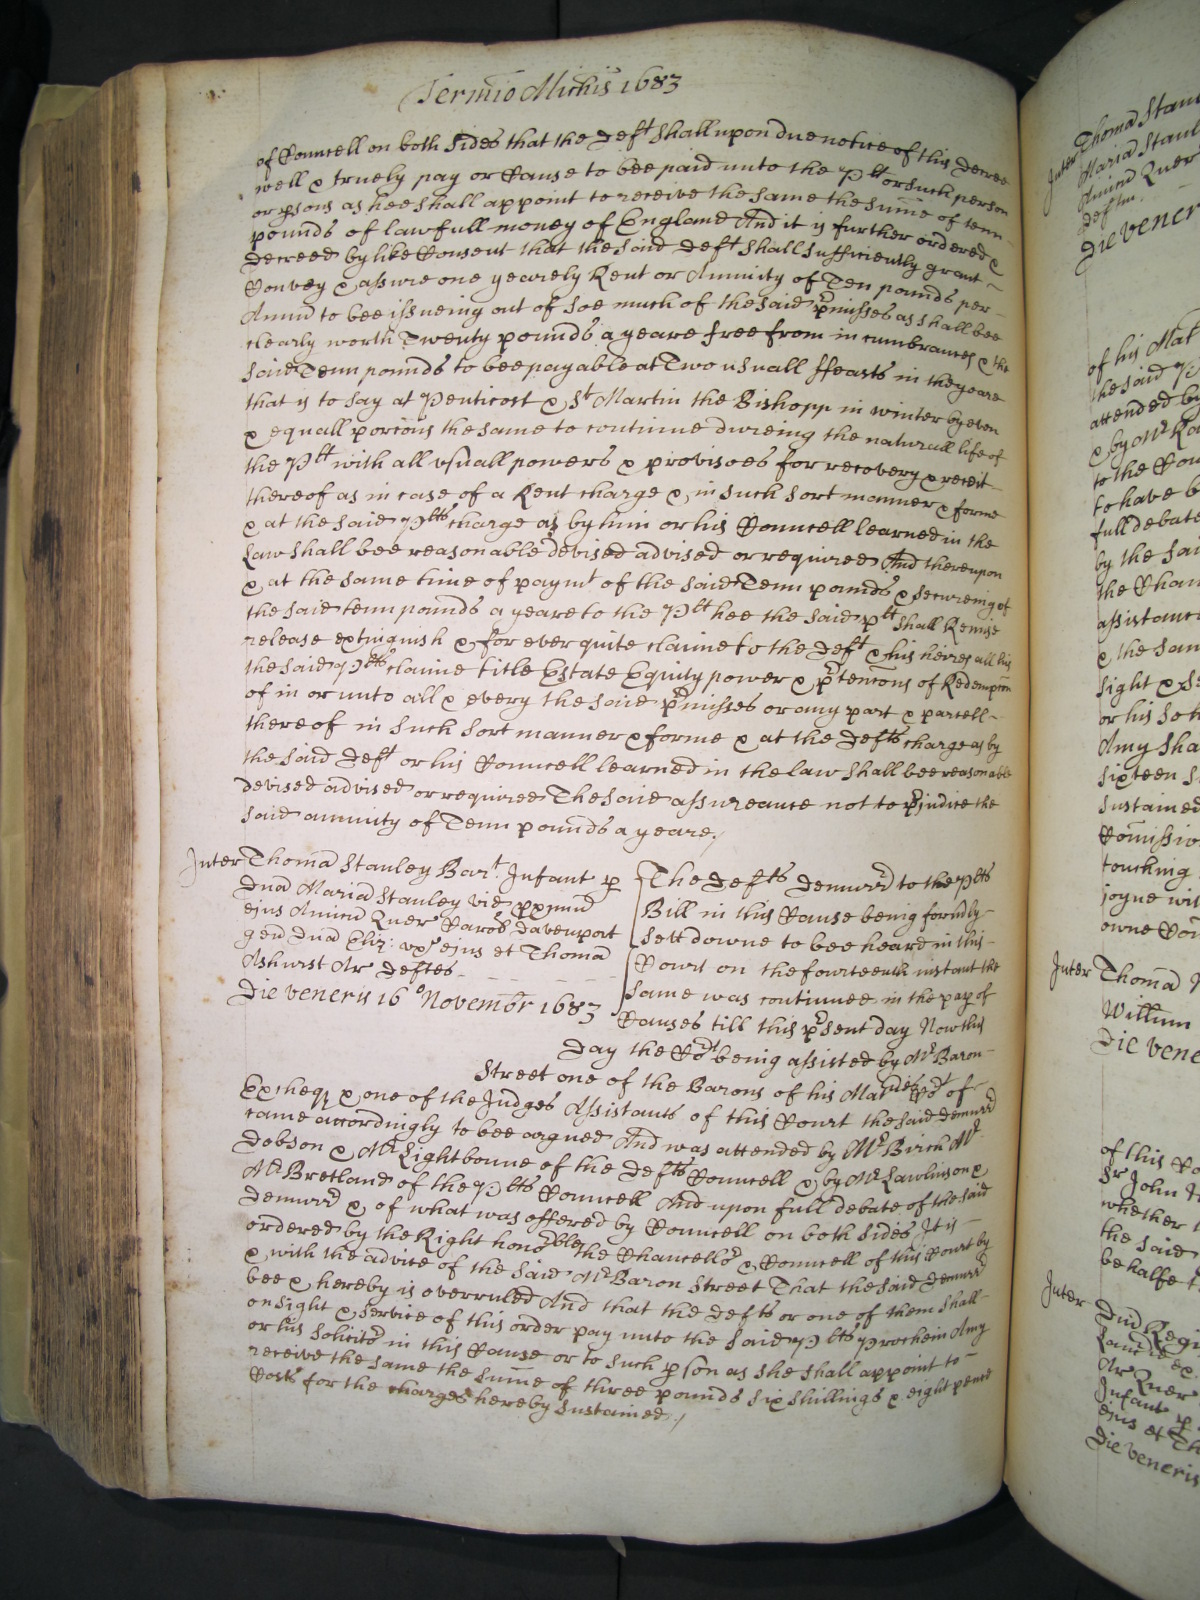 Termio Michis 1683
of Councell on both sides that the Deft shall upon due notice of this Decree
well & truely pay or Cause to bee paid unto the Plt or such person
or psons as hee shall appoint to receive the same the sume of tenn
pounds of lawfull money of England And it is further ordered &
Decreed by like Consent that the said Deft shall sufficiently grant
Convey & assure one yearely Rent or Annuity of Ten pounds per
Annu to bee issueing out of soe much of the said pmisses as shall bee
clearly worth Twenty pounds a yeare free from incumbrances & the
said Tenn pounds to bee payable at Two usuall ffeasts in the yeare
that is to say at Penticost & St Martin the Bishopp in winter by even
& equall porcons the same to continue dureing the naturall life of
the Plt with all usuall powers & provisoes for recovery & receit
thereof as in case of a Rent charge & in such sort manner & forme
& at the said Plts charge as by him or his Councell learned in the
Law shall bee reasonable devised advised or required And thereupon
& at the same time of paymt of the said Tenn pounds & secureing of
the said tenn pounds a yeare to the Plt hee the said plt shall Remise
release extinguish & for ever quite claime to the Deft & his heires all his
the said Plts claime title Estate Equity power & ptencons of Redempcon
of in or unto all & every the said pmisses or any part & parcell
thereof in such sort manner & forme & at the Defts charge as by
the said Deft or his Councell learned in the law shall bee reasonable
devised advised or required The said assureance not to pjudice the
said annuity of Tenn pounds a yeare
Inter Thoma Stanley Bart Infant p
Dna Maria Stanley vid pximu
ejus Amicu Quer Carob Davenport
gen Dna Eliz ux ejus et Thoma
Ashurst Ar Deftes
Die veneris 16o Novembr 1683
The Defts Demurr to the Plts
Bill in this Cause being formrly
sett downe to bee heard in this
Court on the fourteenth instant the
same was continued in the pap of
Causes till this psent day Now this
Day the Cot being assisted by Mr Baron
Street one of the Barons of his Maties Cot of
Excheqr & one of the Judges Assistants of this Court the said Demurr
came accordingly to bee argued And was attended by Mr Birch Mr
Dobson & Mr Lightboune of the Defts Councell & by Mr Rawlinson &
Mr Bretland of the Plts Councell And upon full debate of the said
Demurr & of what was offered by Councell on both sides It is
ordered by the Right honoble the Chancellor & Councell of this Court by
& with the advice of the said Mr Baron Street That the said Demurr
bee & hereby is overruled And that the Defts or one of them shall
on sight & service of this order pay unto the said Plts Prochein Amy
or his solicitr in this Cause or to such pson as she shall appoint to
receive the same the sume of three pounds six shillings & eight pence
Costs for the charges hereby sustained
Inter Thoma Stan
Maria Stanl
Amicu Quer
Deftm
Die vener
of his Mat
the said P
attended by
& by Mr Ra
to the Cou
to have b
full debate
by the sai
the Chan
assistanc
& the sam
sight & se
or his soli
Amy sha
sixteen s
sustained
Comissio
touching
joyne wit
owne Com
Inter Thoma
Willum
Die vene
of this Co
Sr John
whether
the said
behalfe
Inter Dnu Regi
Ar Quer
Infant p
ejus et Th
Die veneris